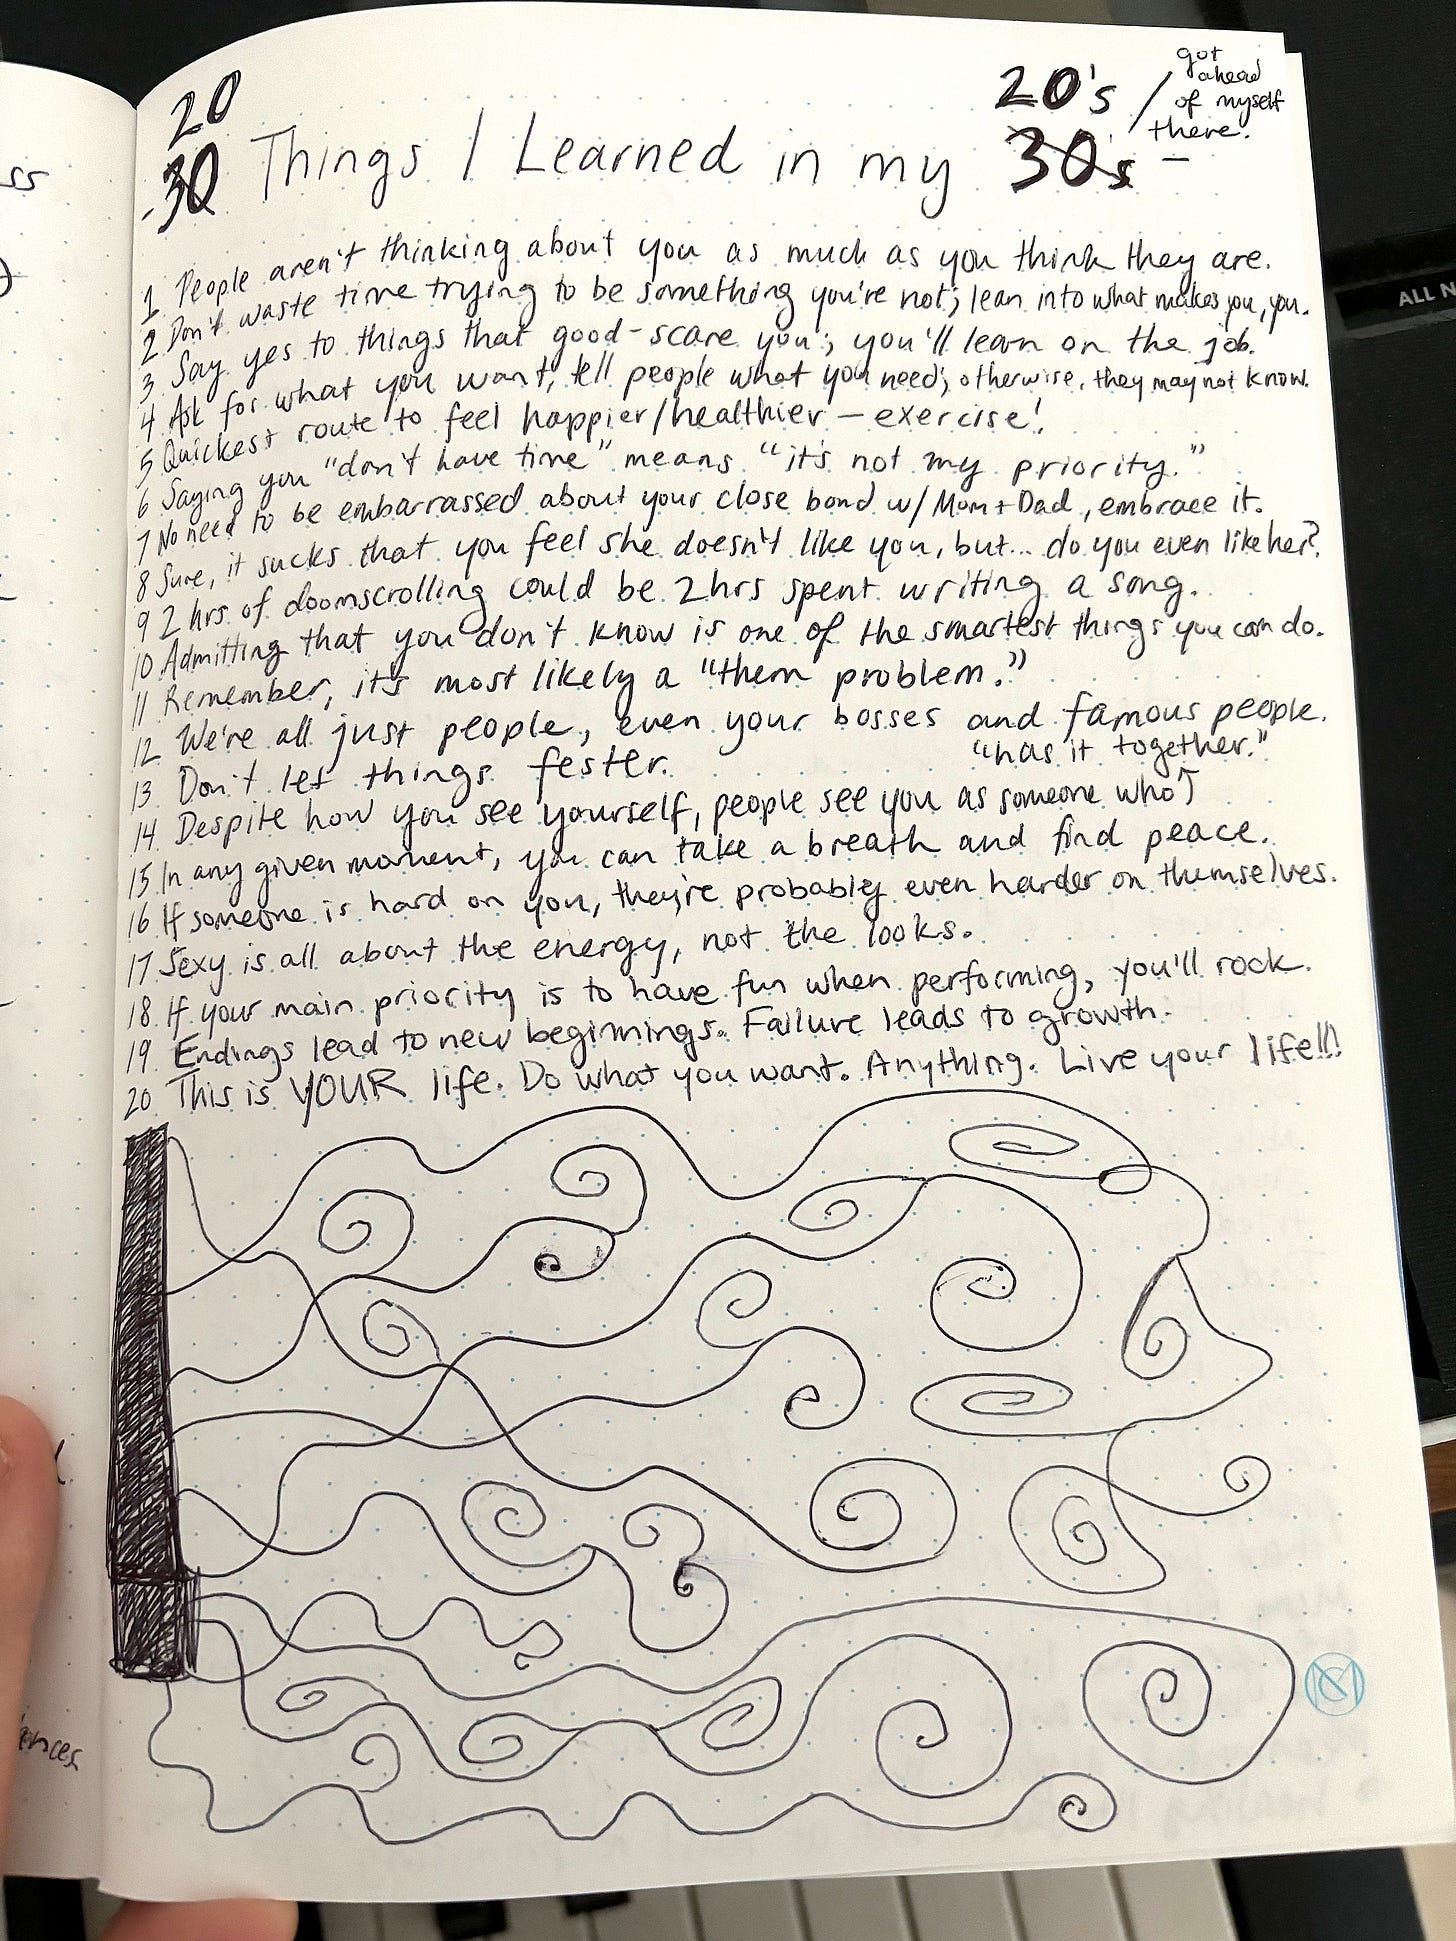 20
30 Things I Learned in my 30's
20's / got ahead of myself there.
1 People aren't thinking about you as much as you think they are.
2 Don't waste time trying to be something you're not; lean into what makes you, you.
3 Say yes to things that good-scare you; you'll learn on the job.
4 Ask for what you want, tell people what you need; otherwise, they may not know.
5 Quickest route to feel happier/healthier — exercise!
6 Saying you "don't have time" means "it's not my priority."
7 No need to be embarrassed about your close bond w/ Mom + Dad, embrace it.
8 Sure, it sucks that you feel she doesn't like you, but... do you even like her?
9 2 hrs of doomscrolling could be 2 hrs spent writing a song.
10 Admitting that you don't know is one of the smartest things you can do.
11 Remember, it's most likely a "them problem."
12 We're all just people, even your bosses and famous people.
13 Don't let things fester.
14 Despite how you see yourself, people see you as someone who "has it together."
15 In any given moment, you can take a breath and find peace.
16 If someone is hard on you, they're probably even harder on themselves.
17 Sexy is all about the energy, not the looks.
18 If your main priority is to have fun when performing, you'll rock.
19 Endings lead to new beginnings. Failure leads to growth.
20 This is YOUR life. Do what you want. Anything. Live your life!!!
ss
ences
ALL N